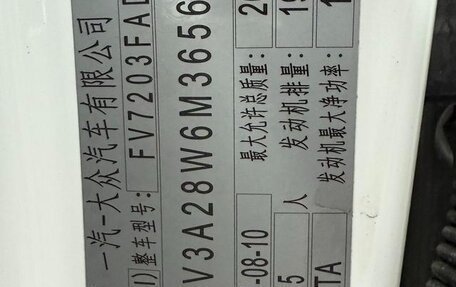 一汽-大众汽车有限公司
整车型号: FV7203FAD
V3A28W6M3656
-08-10 最大允许总质量: 2
5 人 发动机排量: 19
TA 发动机最大净功率: 1